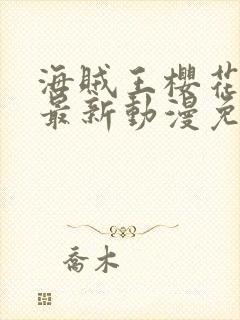 海賊王櫻花
最新動漫免
喬木